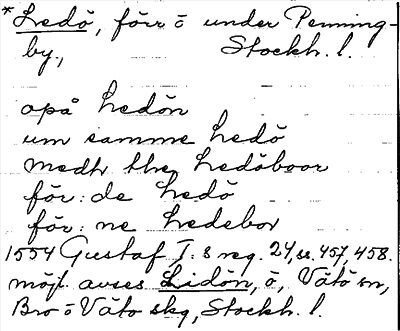 *Ledö, förr ö under Penning-
by, Stockh. l.
opå Ledön
um samme Ledö
medh the Ledöboor
för: de Ledö
för: ne Ledebor
1554 Gustaf I:s reg. 24, ss. 457, 458.
möjl. avses Lidön, ö, Vätö sn,
Bro o Väto skg, Stockh. l.